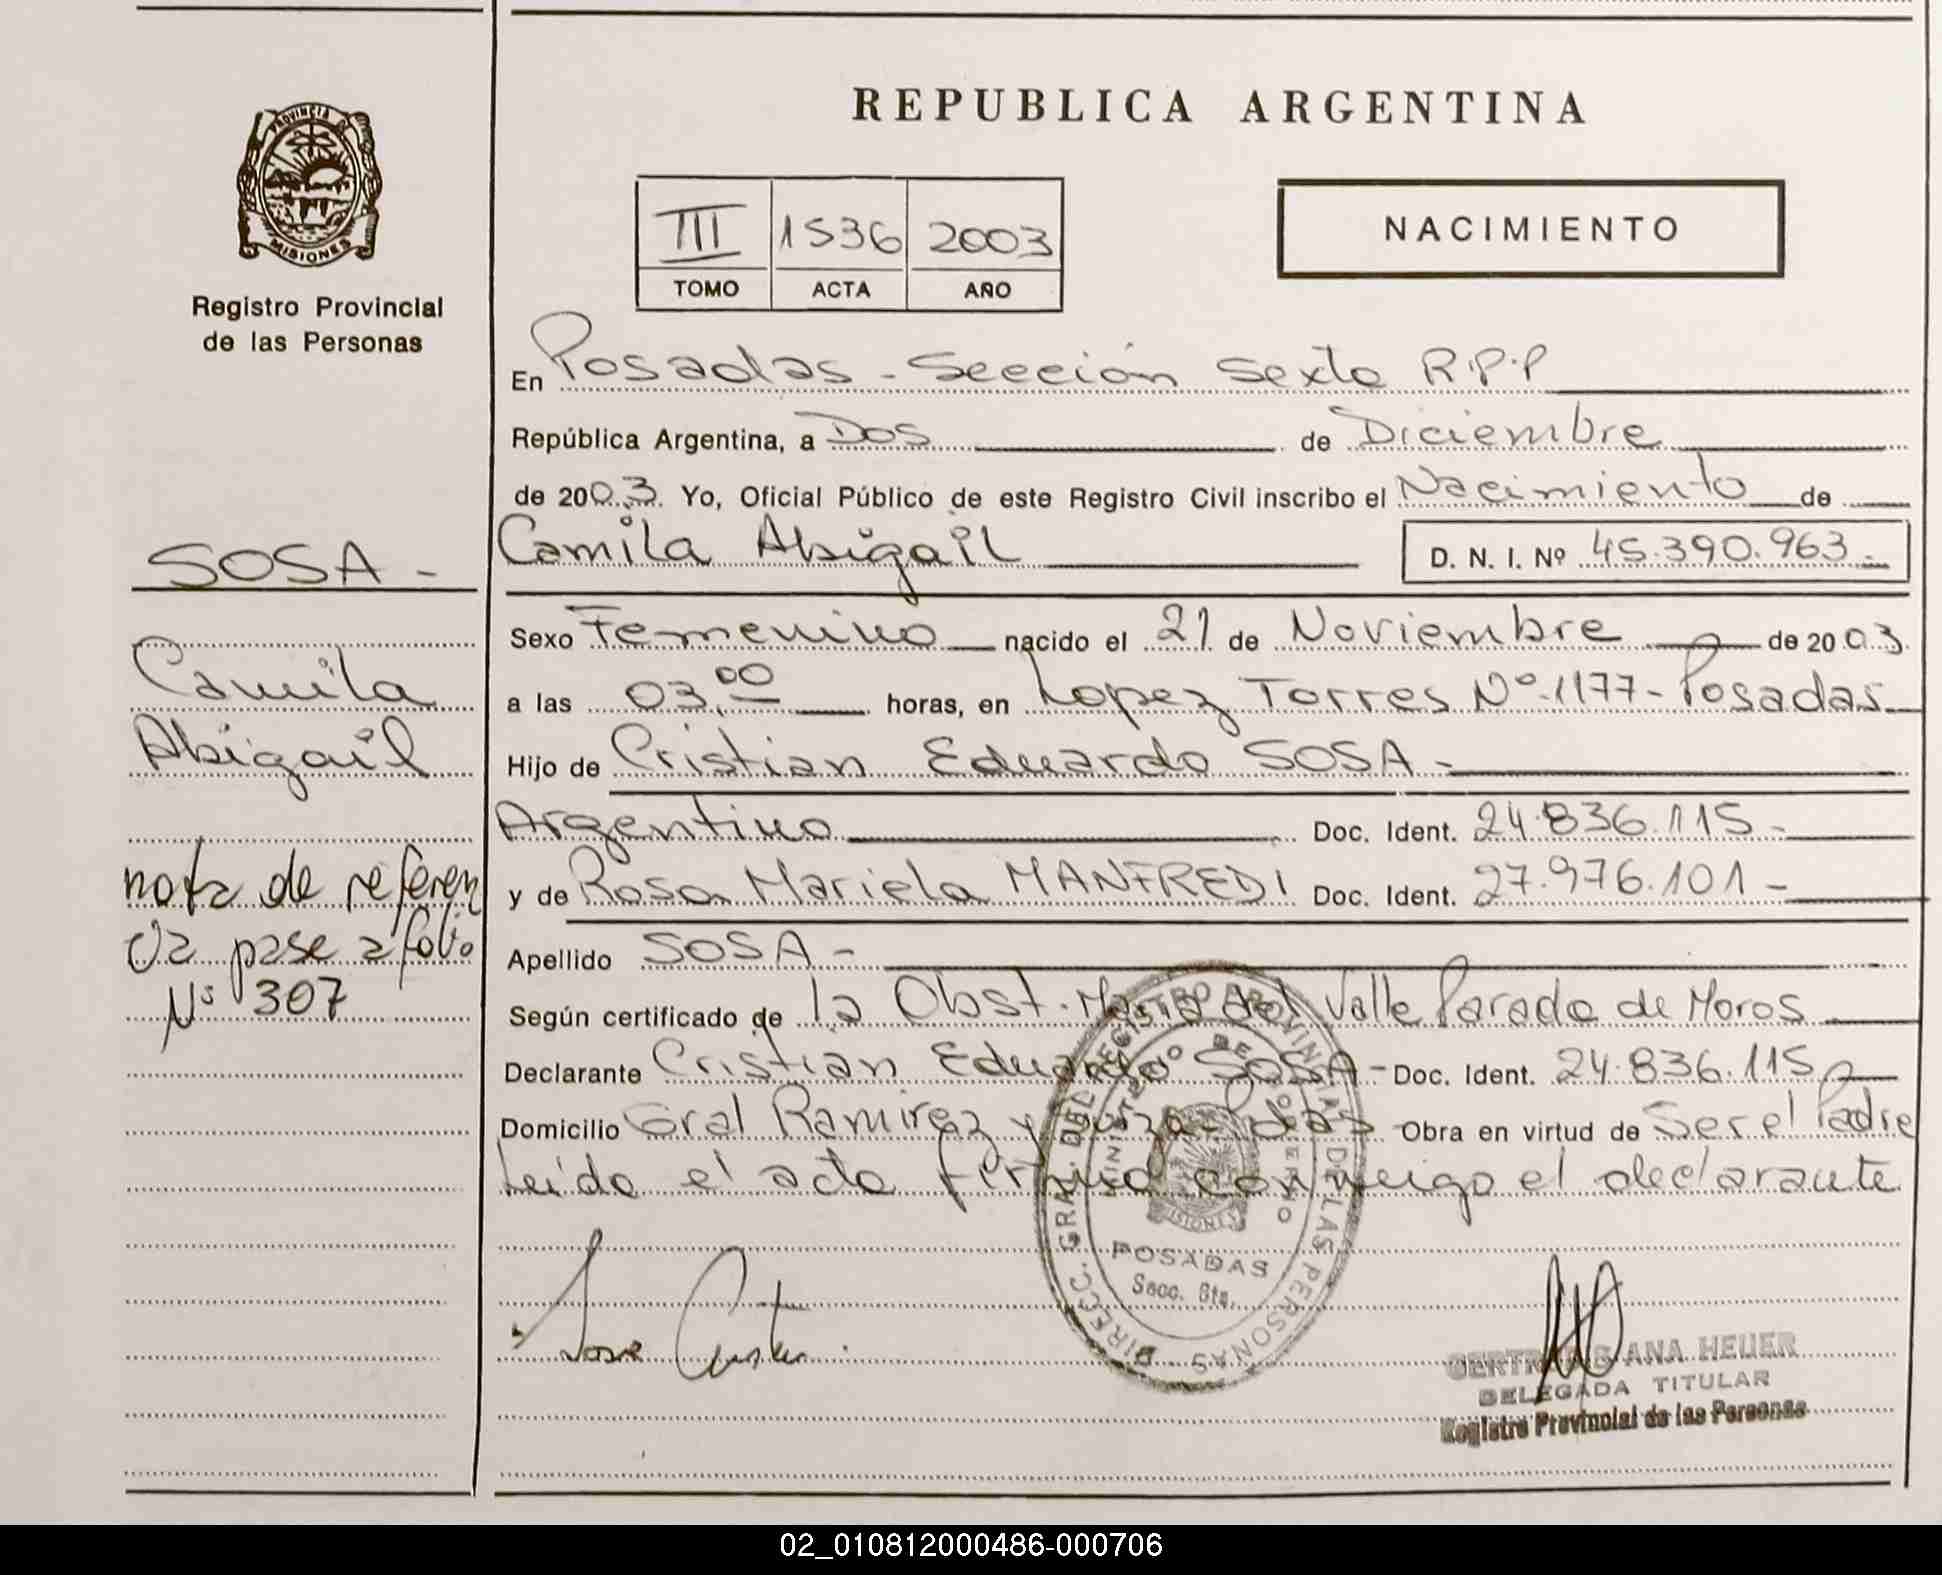 REPUBLICA ARGENTINA
PROVINCIA DE
MISIONES
Registro Provincial
de las Personas
III 1536 2003
TOMO ACTA AÑO
NACIMIENTO
En Posadas - Sección Sexta R.P.P
República Argentina, a Dos de Diciembre
de 2003. Yo, Oficial Público de este Registro Civil inscribo el Nacimiento de
Camila Abigail D. N. I. Nº 45.390.963.-
Sexo Femenino nacido el 21 de Noviembre de 2003.
a las 03,00 horas, en Lopez Torres Nº 1177 - Posadas
Hijo de Cristian Eduardo SOSA -
Argentino Doc. Ident. 24.836.115 -
y de Rosa Mariela MANFREDI Doc. Ident. 27.976.101 -
Apellido SOSA -
Según certificado de la Obst. María del Valle Parada de Moros
Declarante Cristian Eduardo SOSA - Doc. Ident. 24.836.115
Domicilio Gral Ramirez y Obra en virtud de Ser el Padre
Leída el acta firma conmigo el declarante
SOSA -
Camila
Abigail
nota de referen
cia pase a folio
Nº 307
DIRECC. GRAL. DEL REGISTRO PROVINCIAL DE LAS PERSONAS
MINISTERIO DE GOBIERNO
MISIONES
POSADAS
Secc. 6ta.
Sosa Cristian
ANA HEUER
DELEGADA TITULAR
Registro Provincial de las Personas
02_010812000486-000706